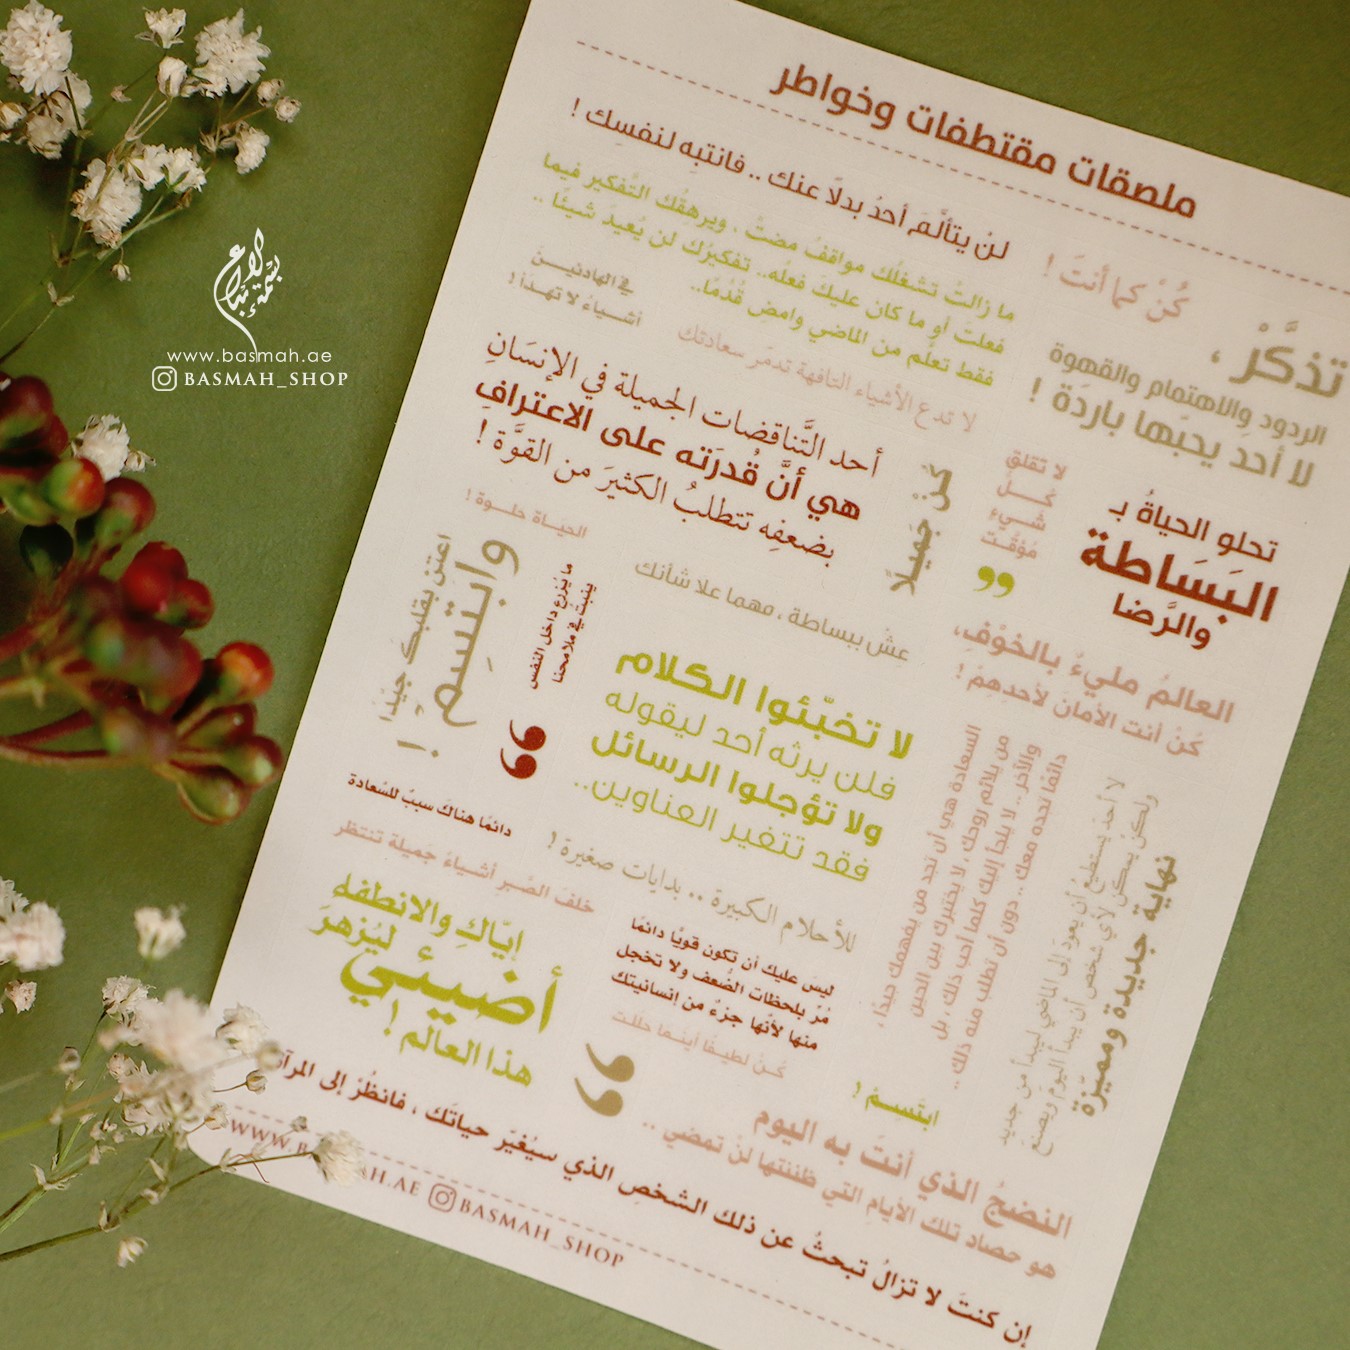 بسمة الإبداع
www.basmah.ae
BASMAH_SHOP
ملصقات مقتطفات وخواطر
لن يتألَّمَ أحدُ بدلاً عنك .. فانتبِه لنفسِك !
كُنْ كما أنتَ !
ما زالتْ تشغلُك مواقفُ مضتْ ، ويرهقُك التَّفكير فيما
فعلتَ أو ما كان عليك فعلُه.. تفكيرُك لن يُعيدَ شيئًا ..
فقط تعلَّم من الماضي وامضِ قُدُمًا..
في الهادئين
أشياءُ لا تهدأ !
تذكَّرْ ،
الردود والاهتمام والقهوة
لا أحدَ يحبّها باردَة !
لا تدع الأشياء التافهة تدمّر سعادتك
أحد التَّناقضات الجميلة في الإنسَانِ
هي أنَّ قُدرَته على الاعترافِ
بضعفِه تتطلبُ الكثيرَ من القوَّة !
كنْ جَميلًا
لا تقلق
كلّ شيءٍ
مُؤقَّتْ
تحلو الحياةُ بـ
البَسَاطة
والرَّضا
الحيَاة حلوة !
اعتنِ بقلبكَ جيّدًا
وابتَسِم !
ما يُزرع داخل النفس
ينبتُ في ملامحنا
عشْ ببساطة ، مهما علا شأنك
العالمُ مليءٌ بالخوْفِ،
كُنْ أنت الأمانَ لأحدِهِمْ !
لا تخبّئوا الكلام
فلن يرثه أحد ليقوله
ولا تؤجلوا الرسائل
فقد تتغير العناوين..
السعادة هي أن تجد من يفهمك جيدًا ،
من يلائم روحك ، لا يختبرك بين الحين
والآخر .. لا يلجأ إليك كلما أحب ذلك ، بل
دائمًا تجده معك .. دون أن تطلب منه ذلك ..
لا أحدَ يستطيعُ أن يعودَ إلى الماضي ليبدأ من جديد
ولكنْ يمكن لأي شخص أن يبدأ اليومَ ويصنع
نهاية جديدة ومميّزة
دائمًا هناك سببُ للسّعادة
خلفَ الصّبر أشياءُ جَميلة تنتظر
للأحلام الكبيرة .. بدايات صغيرة !
إيّاكِ والانطفاء
أضيئي
ليَزهرَ
هذا العالم !
ليسَ عليك أن تكون قويًا دائمًا
مُرّ بلحظات الضُعف ولا تخجل
منها لأنّها جزءٌ من إنسانيتك
كُنْ لطيفًا أينما حللت
ابتَسمْ !
النضجُ الذي أنتَ به اليوم
هو حصاد تلك الأيامِ التي ظننتها لنْ تمضي ..
إن كنتَ لا تزالُ تبحثُ عن ذلك الشخصِ الذي سيُغيّر حياتَك ، فانظُرْ إلى المرآة
WWW.B AH.AE BASMAH_SHOP